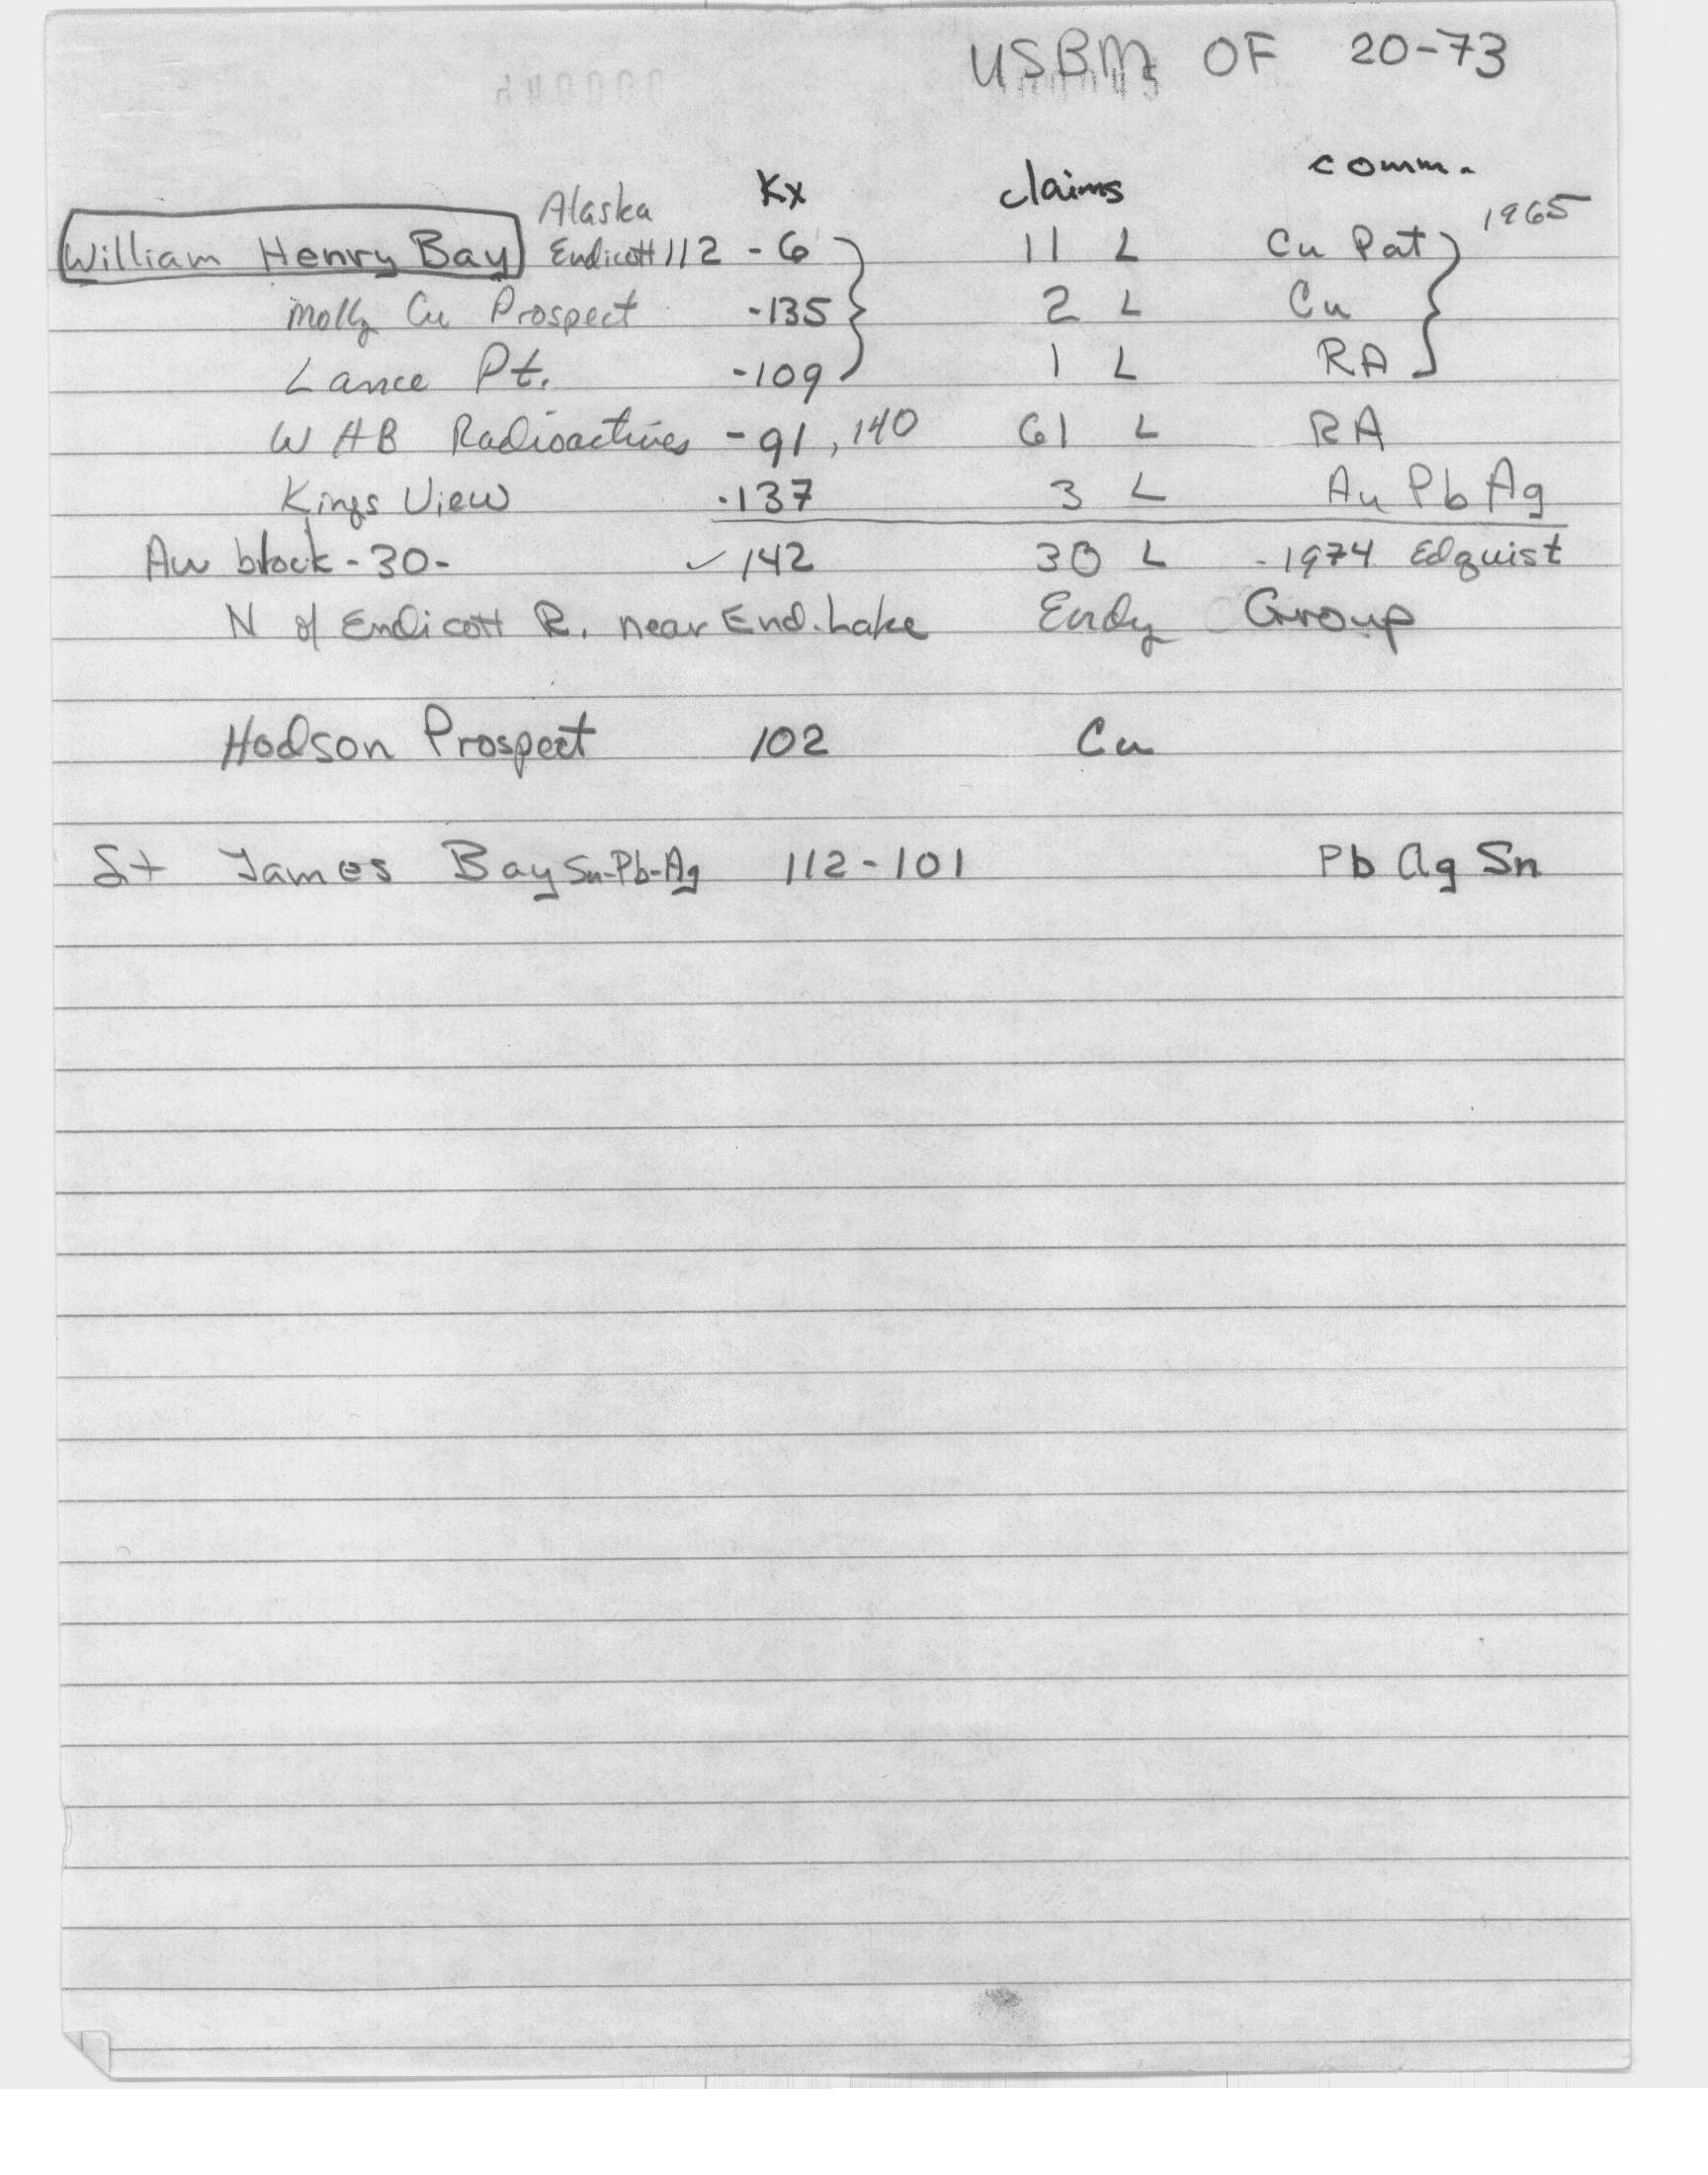 USBM OF 20-73
Kx claims comm.
Alaska 1965
William Henry Bay Endicott 112 - 6 11 L Cu Pat
Molly Cu Prospect -135 2 L Cu
Lance Pt. -109 1 L RA
WHB Radioactives -91, 140 61 L RA
Kings View -137 3 L Au Pb Ag
block -30- ✓ 142 30 L - 1974 Edquist
N of Endicott R. near End. Lake Group
Hodson Prospect 102 Cu
St James Bay Sn-Pb-Ag 112-101 Pb Ag Sn